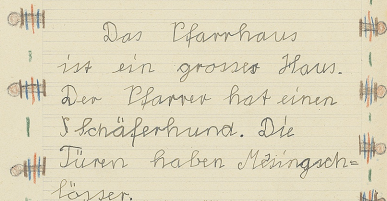 Das Pfarrhaus
ist ein grosses Haus.
Der Pfarrer hat einen
Schäferhund. Die
Türen haben Mesingsch=
lösser.